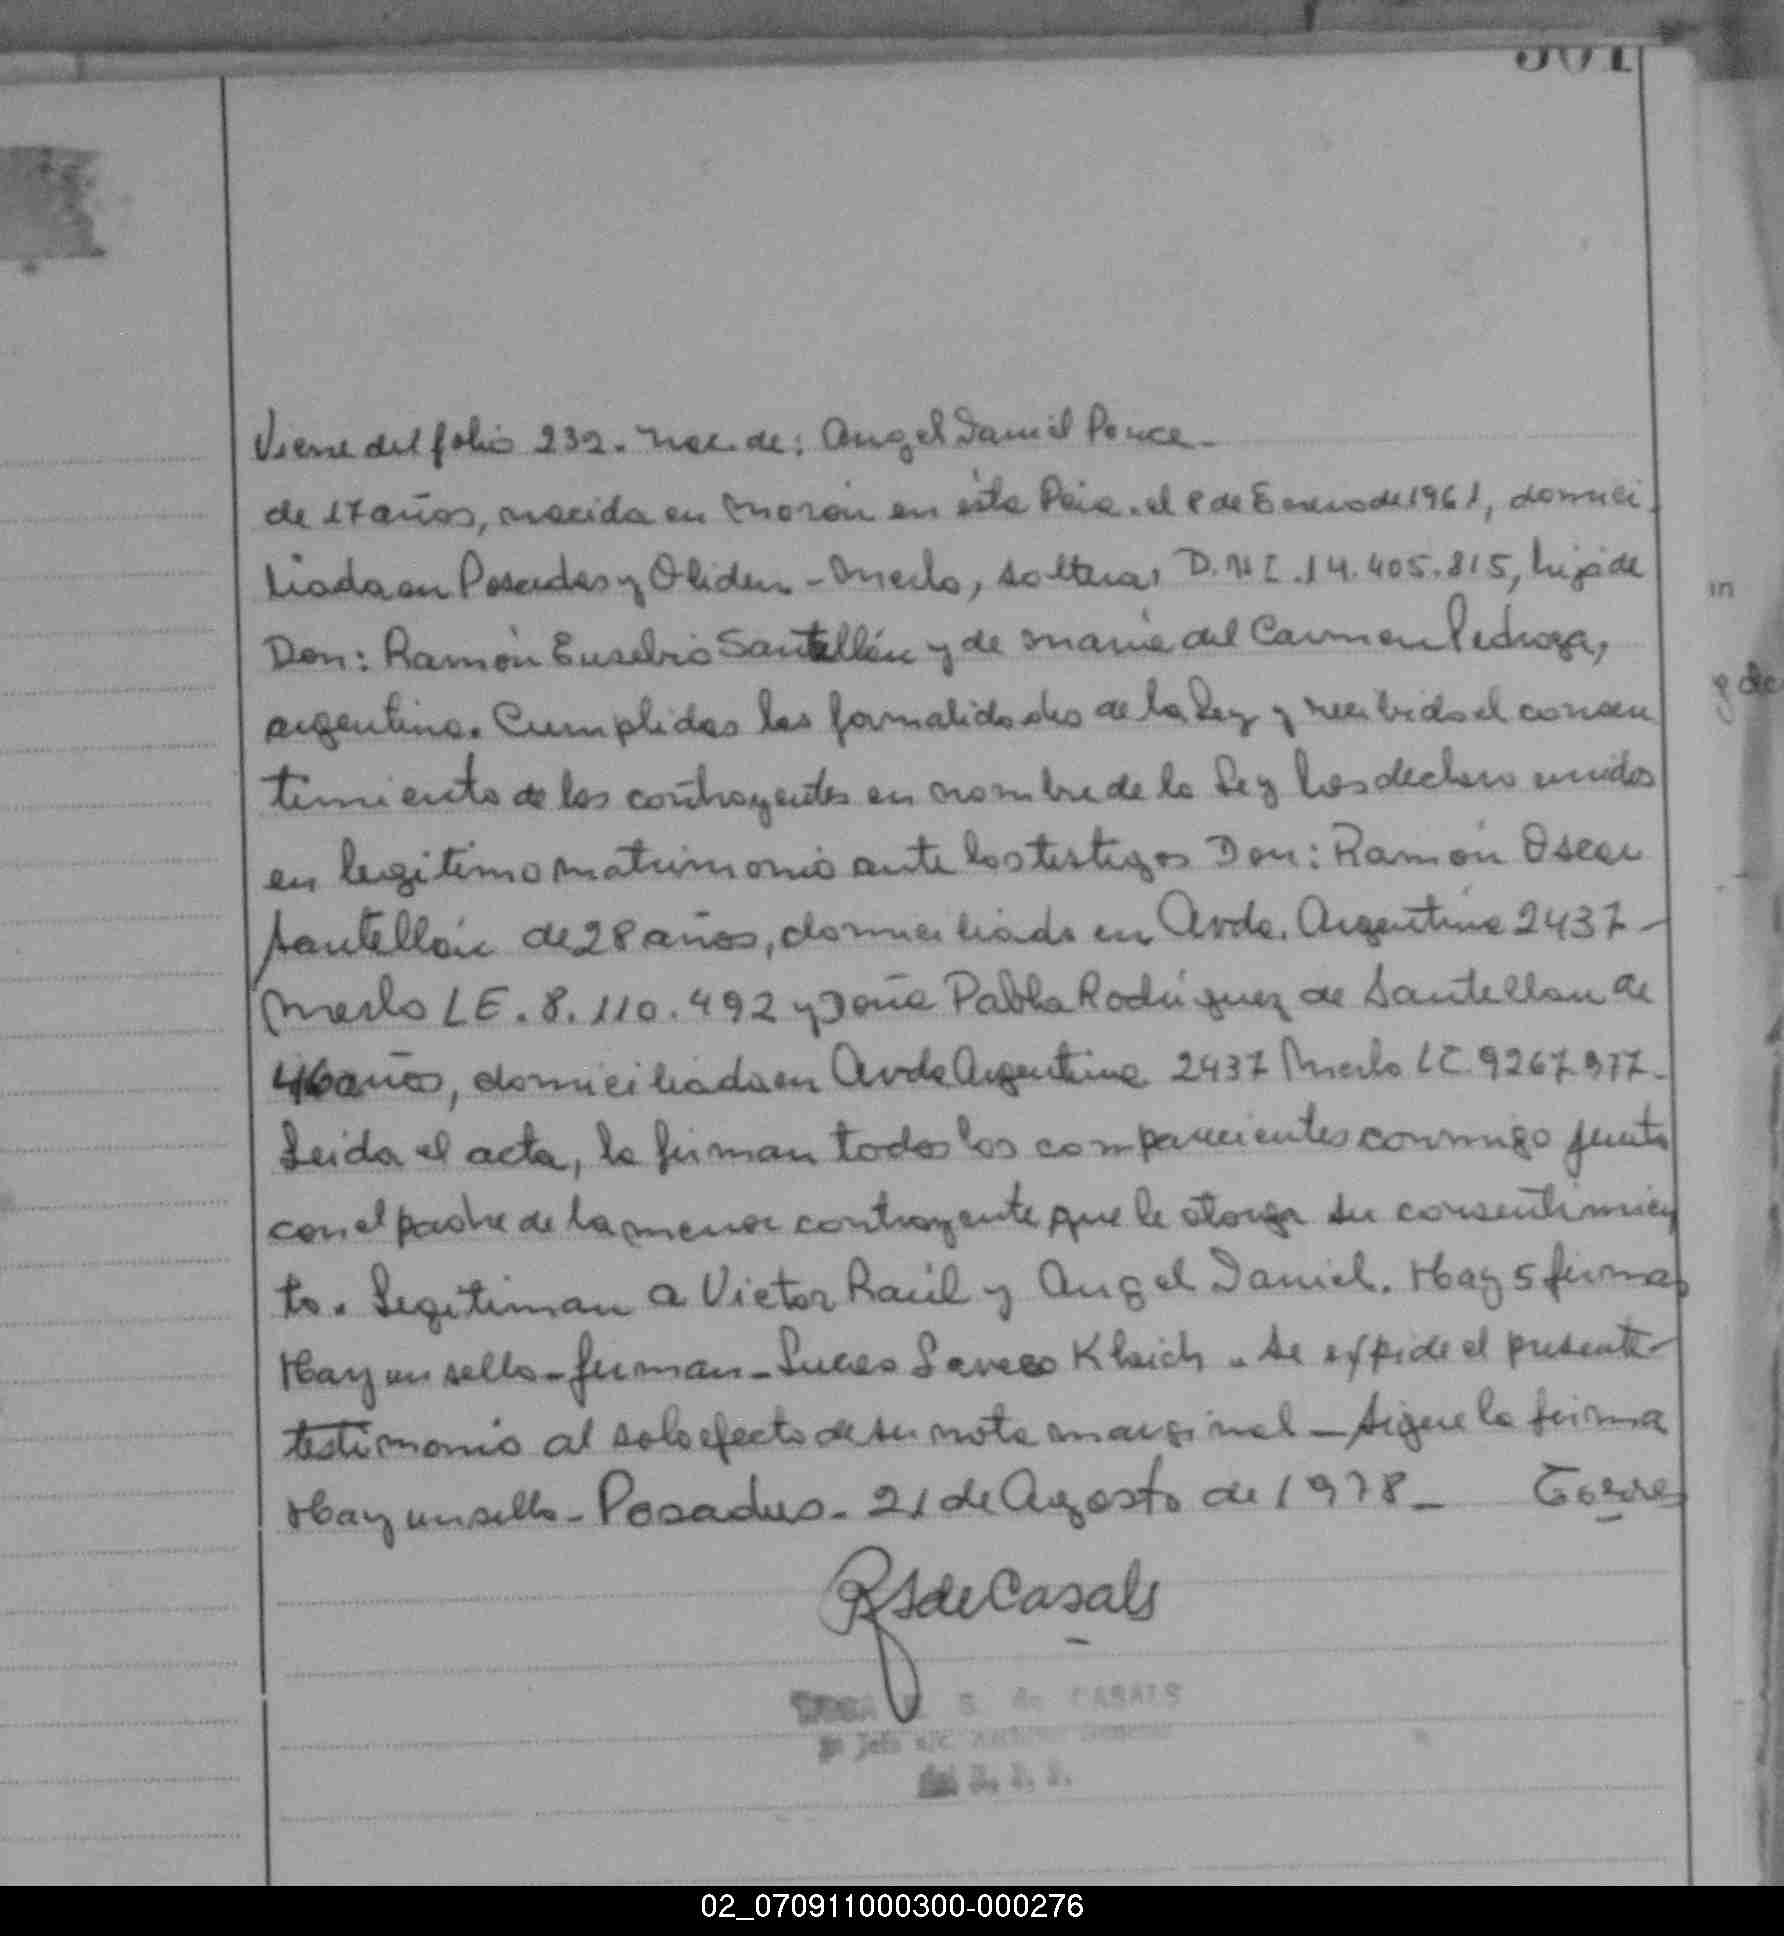 501
Viene del folio 232. Nac. de: Angel Daniel Ponce_
de 17 años, nacida en Morón en ésta Pcia. el 8 de Enero de 1961, domici
liada en Posadas y Oliden - Merlo, soltera, D.N.I. 14.405.815, hija de
Don: Ramón Eusebio Santellán y de María del Carmen Pedroza,
argentina. Cumplidas las formalidades de la Ley y recibido el consen
timiento de los contrayentes en nombre de la Ley los declaro unidos
en legítimo matrimonio ante los testigos Don: Ramón Oscar
Santellán de 28 años, domiciliado en Avda. Argentina 2437 -
Merlo LE. 8.110.492 y Doña Pabla Rodríguez de Santellan de
46 años, domiciliada en Avda Argentina 2437 Merlo LC. 9267.977-
Leida el acta, la firman todos los comparecientes conmigo junto
con el padre de la menor contrayente que le otorga su consentimien
to. Legitiman a Victor Raúl y Angel Daniel. Hay 5 firmas
Hay un sello - firman - Lucas Kleich . Se expide el presente -
testimonio al solo efecto de su nota marginal - Sigue la firma
Hay un sello - Posadas. 21 de Agosto de 1978_ Torres
RS de Casals
S. de CASALS
Jefe a/c. Archivo General
in
y de
02_070911000300-000276